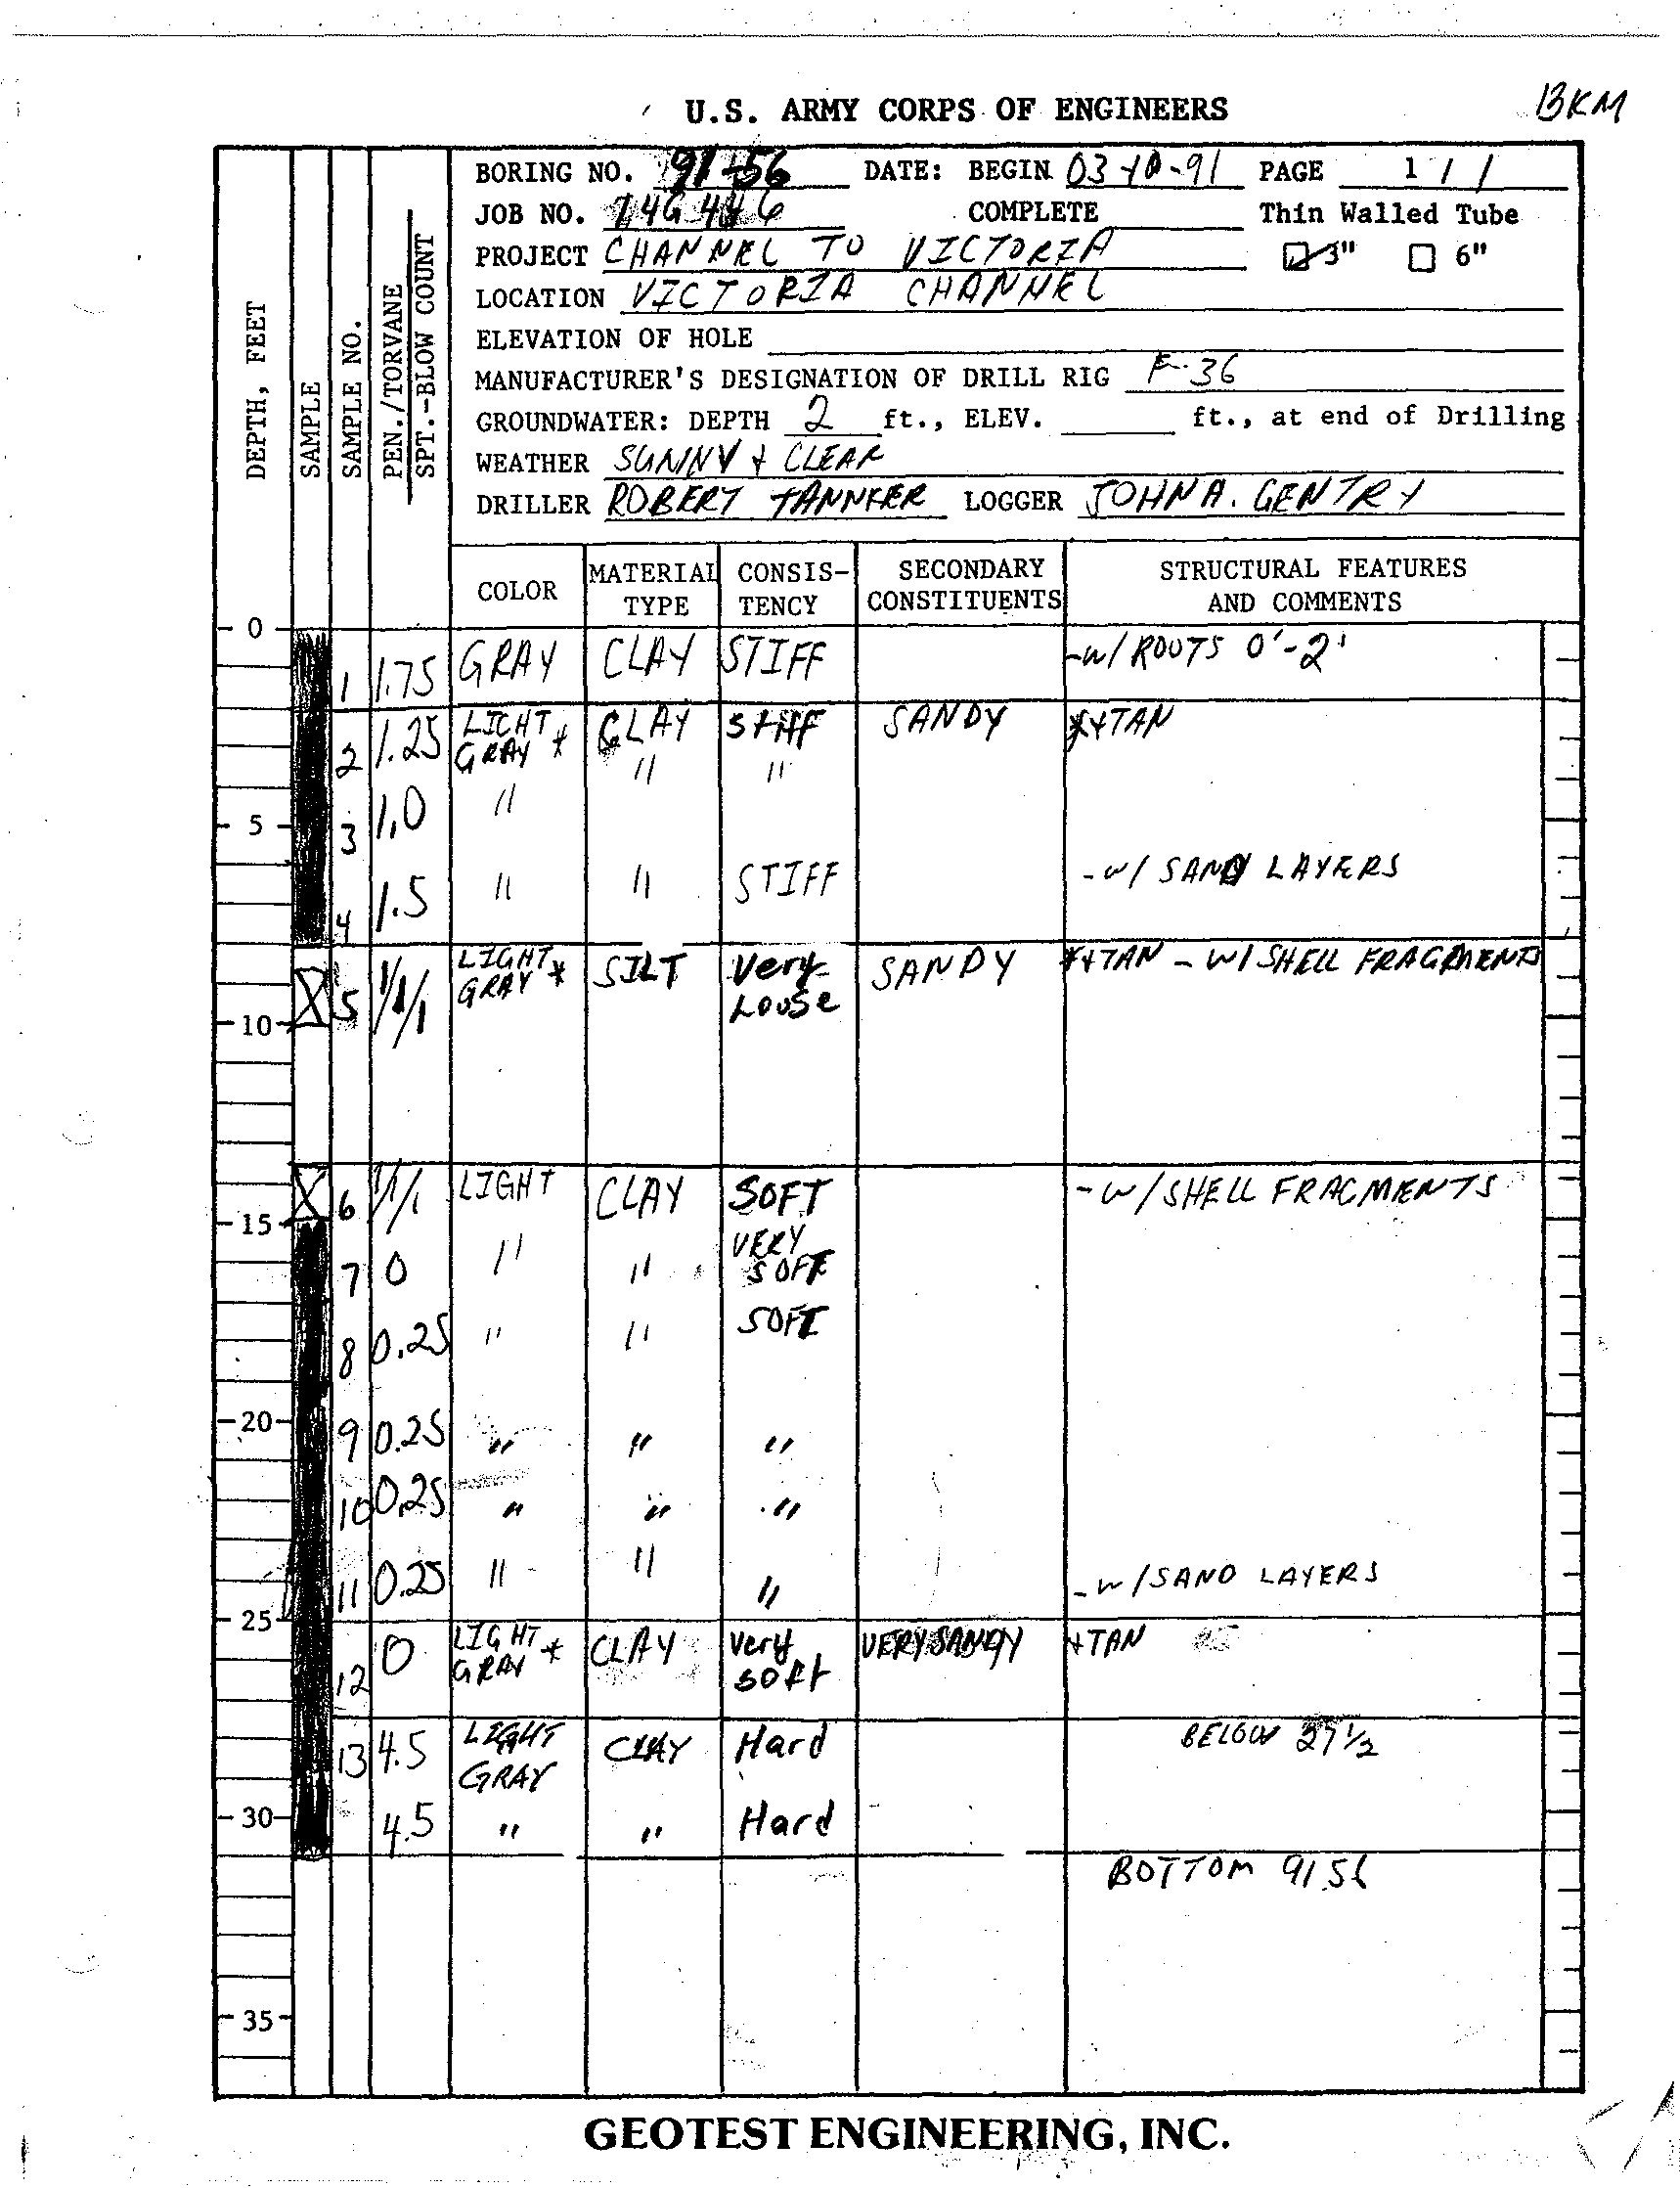 U.S. ARMY CORPS OF ENGINEERS
BKM
BORING NO. 91-56 DATE: BEGIN 03-10-91 PAGE 1 / 1
JOB NO. COMPLETE Thin Walled Tube
PROJECT CHANNEL TO VICTORIA 3" 6"
LOCATION VICTORIA CHANNEL
ELEVATION OF HOLE
MANUFACTURER'S DESIGNATION OF DRILL RIG F-36
GROUNDWATER: DEPTH 2 ft., ELEV. ft., at end of Drilling
WEATHER SUNNY + CLEAR
DRILLER ROBERT TANNKER LOGGER JOHN A. GENTRY
DEPTH, FEET
SAMPLE
SAMPLE NO.
PEN./TORVANE
SPT.-BLOW COUNT
COLOR MATERIAL TYPE CONSIS-TENCY SECONDARY CONSTITUENTS STRUCTURAL FEATURES AND COMMENTS
0
1 1.75 GRAY CLAY STIFF -W/ ROOTS 0'-2'
2 1.25 LIGHT GRAY * CLAY STIFF SANDY *+TAN
" "
5 3 1.0 "
4 1.5 " " STIFF -W/ SAND LAYERS
5 1/1/1 LIGHT GRAY * SILT Very Loose SANDY *+TAN - W/ SHELL FRAGMENTS
10
6 1/1/1 LIGHT CLAY SOFT -W/SHELL FRAGMENTS
15
7 0 " " VERY SOFT
8 0.25 " " SOFT
20 9 0.25 " " "
10 0.25 " " "
11 0.25 " " " -W/SAND LAYERS
25
12 0 LIGHT GRAY * CLAY Very soft VERY SANDY +TAN
13 4.5 LIGHT GRAY CLAY Hard BELOW 27 1/2
30 4.5 " " Hard
BOTTOM 9156
35
GEOTEST ENGINEERING, INC.